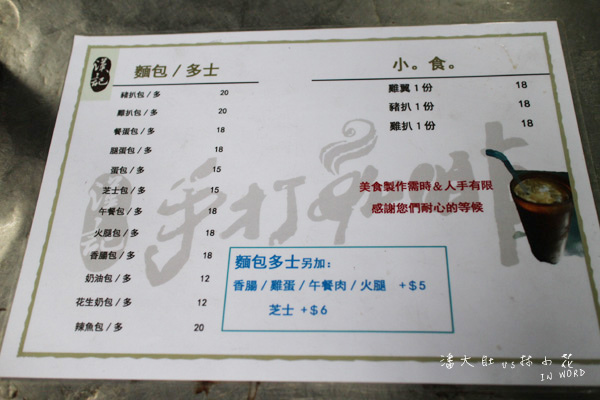 漢記
麵包/多士
豬扒包/多 20
雞扒包/多 20
餐蛋包/多 18
腿蛋包/多 18
蛋包/多 15
芝士包/多 15
午餐包/多 18
火腿包/多 18
香腸包/多 18
奶油包/多 12
花生奶包/多 12
辣魚包/多 20
小。食。
雞翼1份 18
豬扒1份 18
雞扒1份 18
美食製作需時&人手有限
感謝您們耐心的等候
麵包多士另加:
香腸/雞蛋/午餐肉/火腿 +$5
芝士 +$6
漢記
手打咖啡
潘大肚 vs 林小花
IN WORD